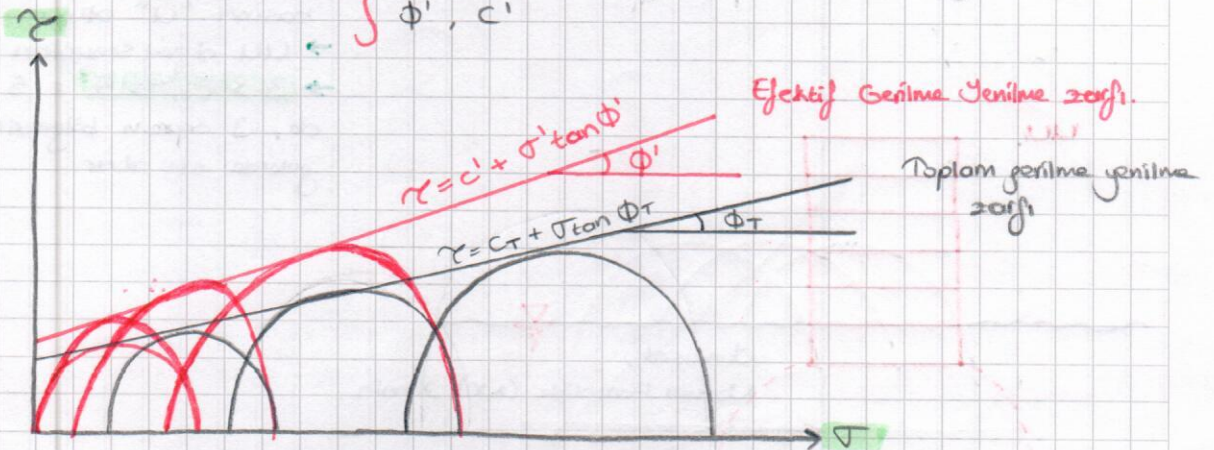 τ
ϕ', c'
Efektif Gerilme Yenilme zarfı.
τ = c' + σ' tan ϕ'
ϕ'
Toplam gerilme yenilme
zarfı
τ = c_T + σ tan ϕ_T
ϕ_T
σ